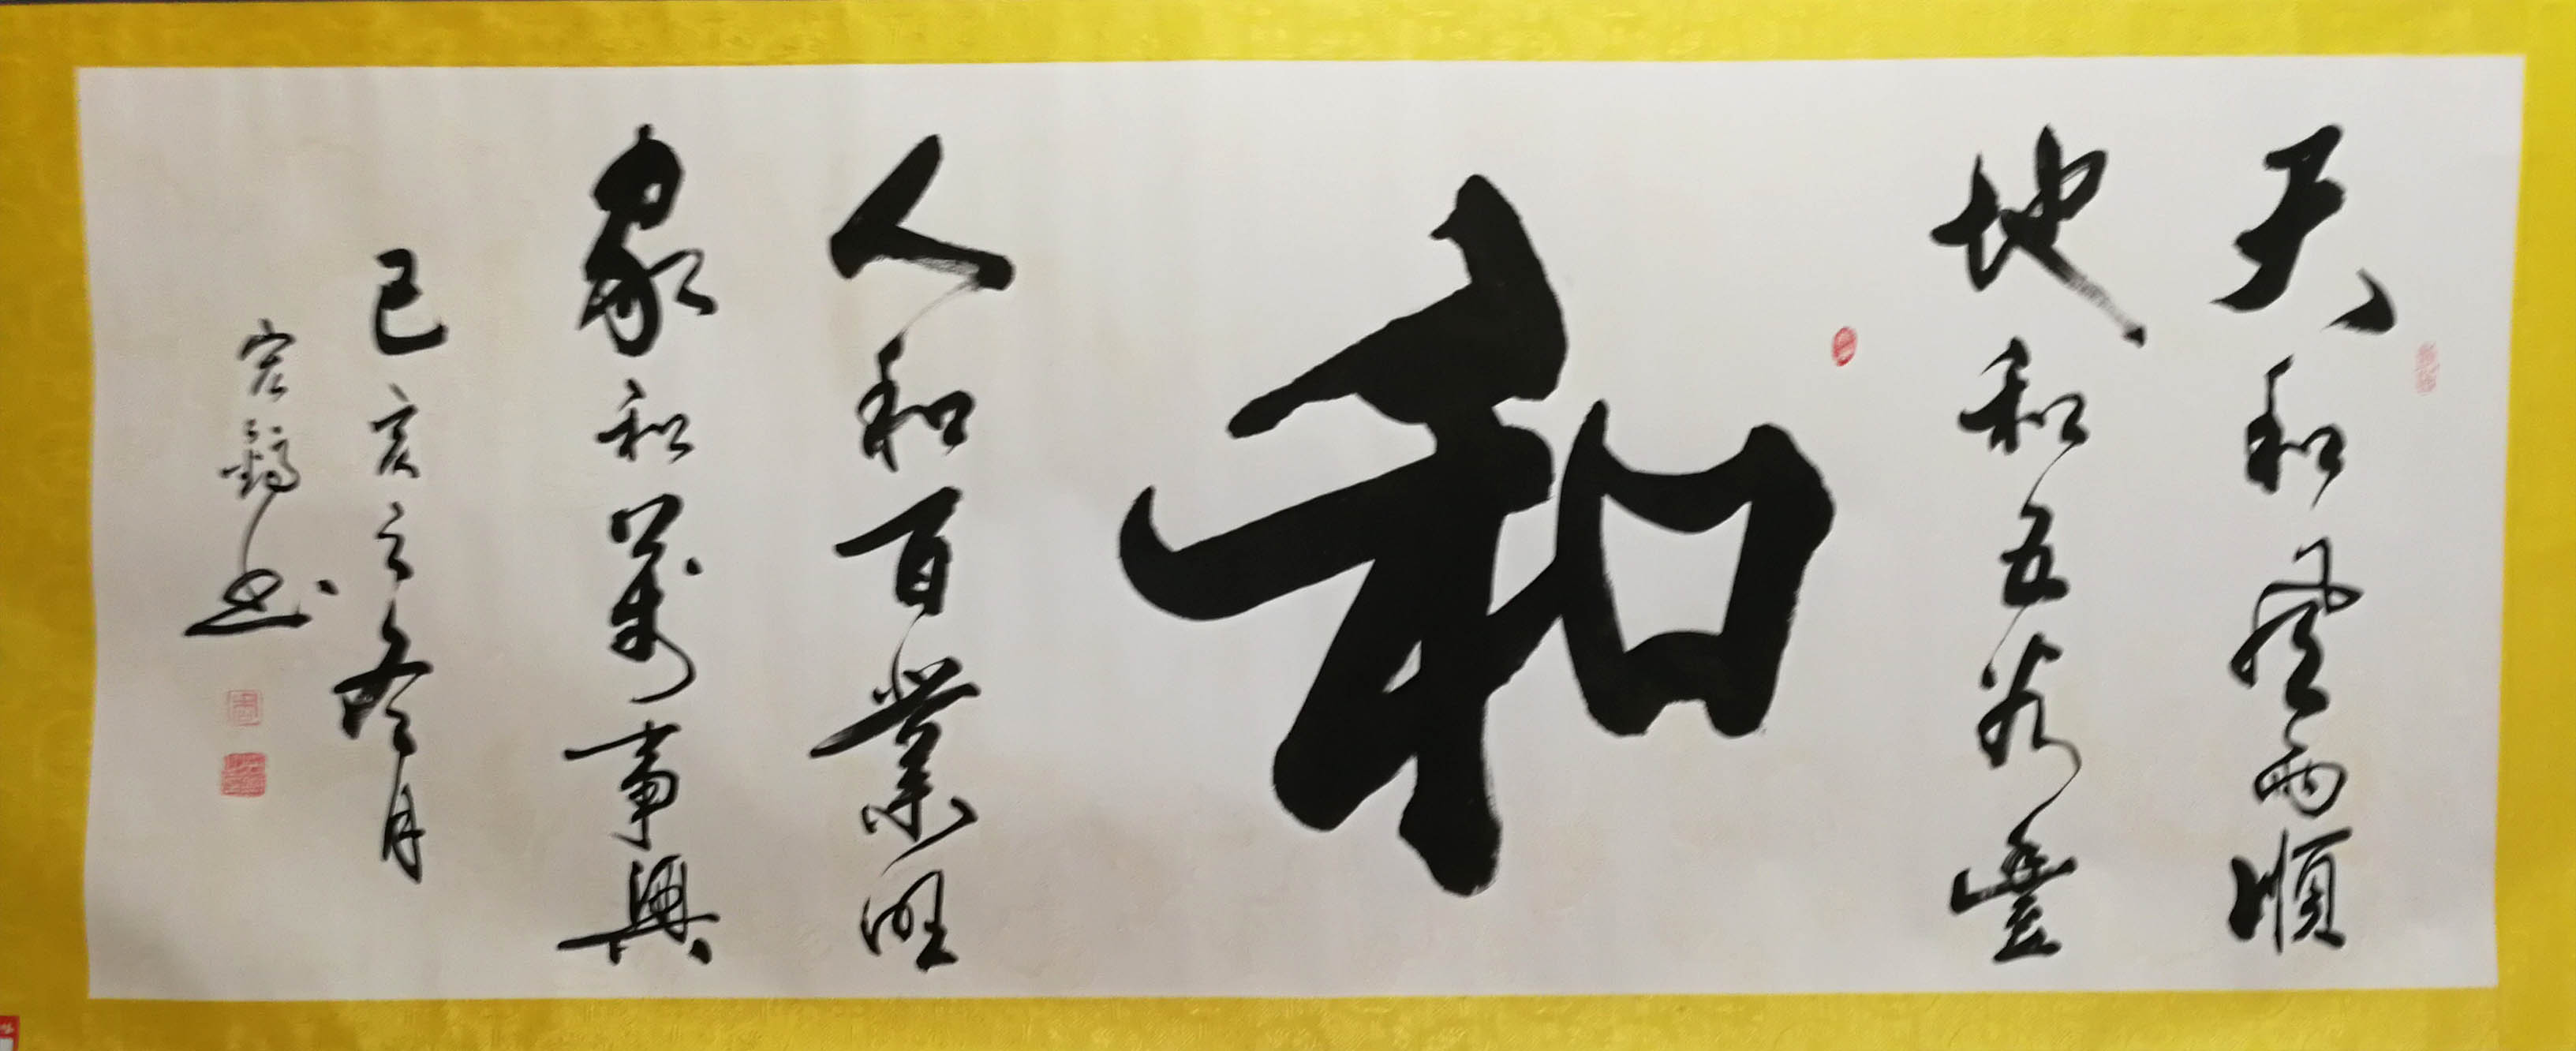 天和風雨順
地和五谷豐
和
人和百業旺
家和萬事興
己亥之冬月
宏鶴书